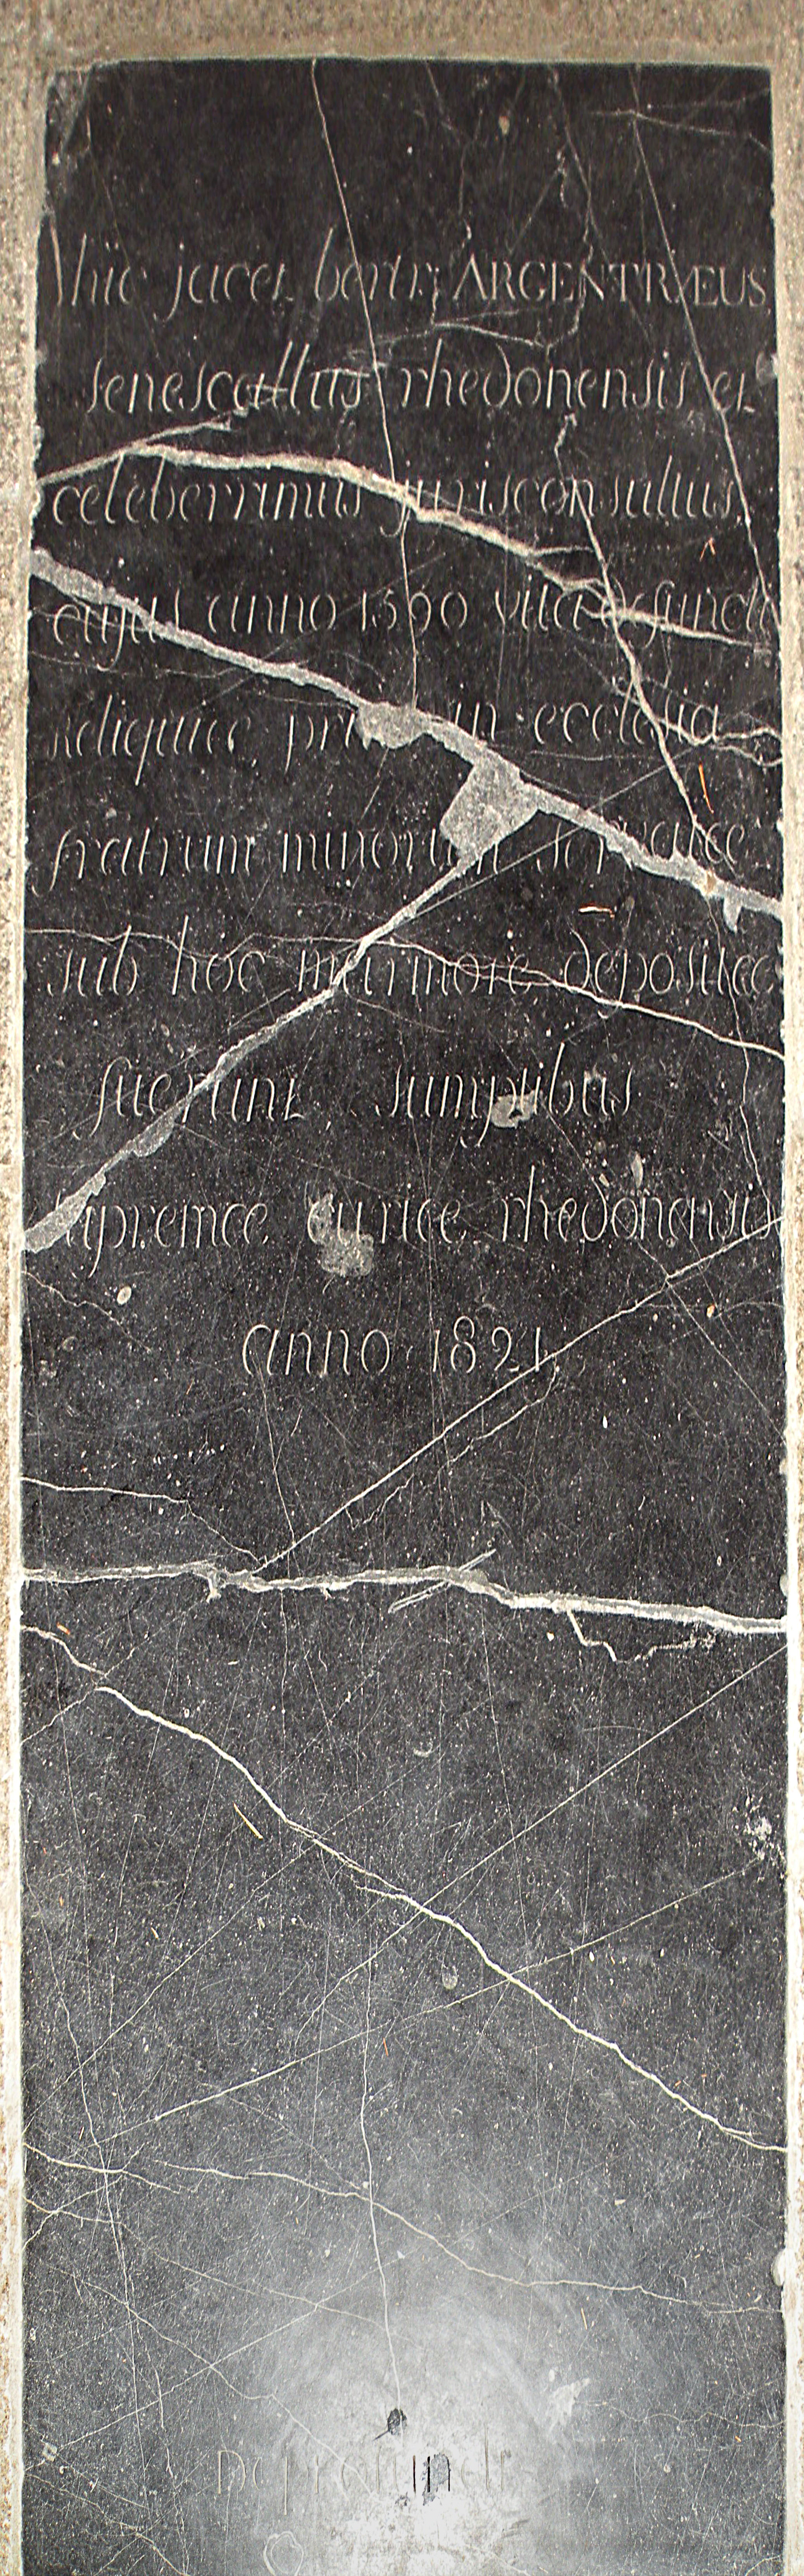 hic jacet bertr; ARGENTRÆUS
senescallus rhedonensis et
celeberrimus jurisconsultus,
cujus anno 1590 vita functi
Reliquiæ in ecclesia
fratrum minorum servatæ
sub hoc marmore depositæ
fuerunt sumptibus
supremæ curiæ rhedonensis
anno 1821.